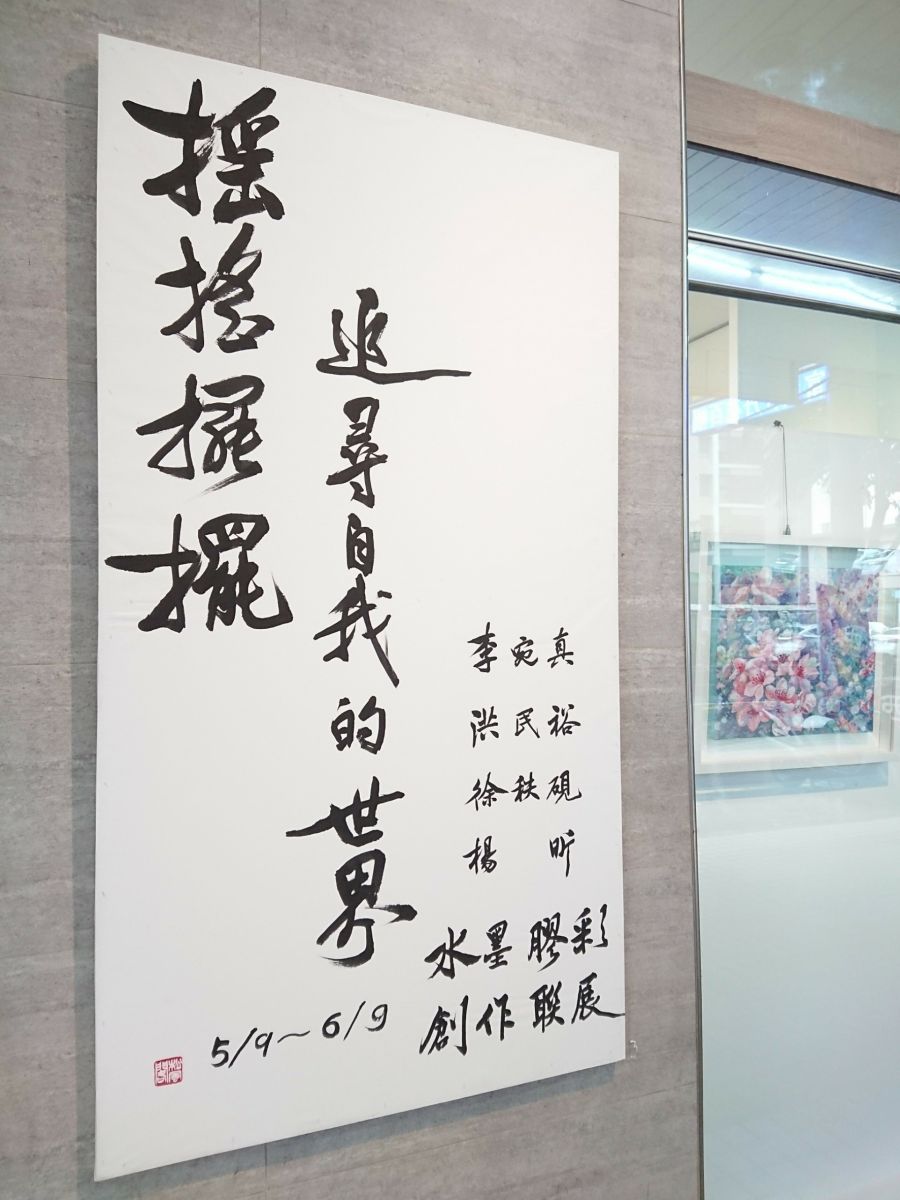 搖搖擺擺
追尋自我的世界
李宛真
洪民裕
徐秩硯
楊昕
水墨膠彩
創作聯展
5/9~6/9